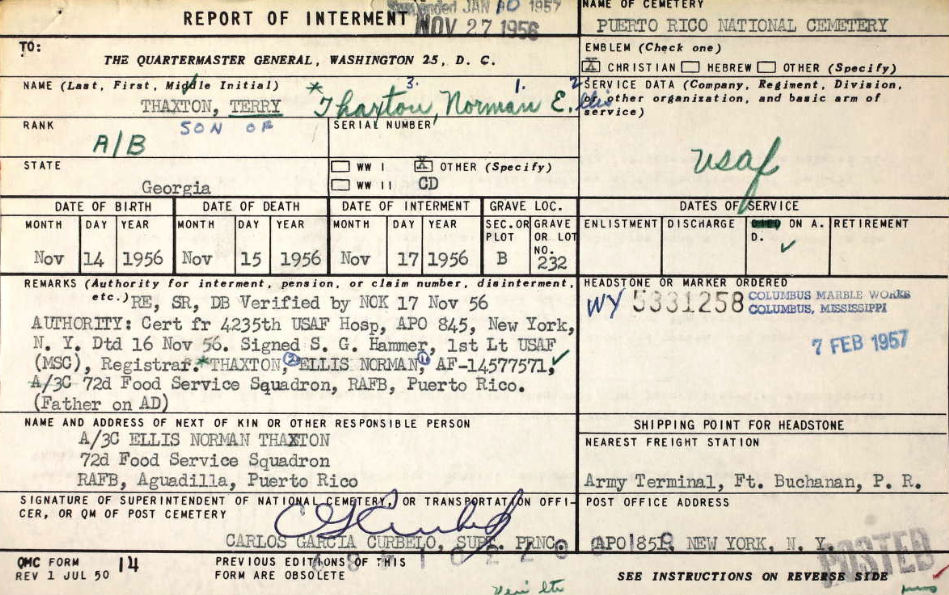 REPORT OF INTERMENT
Suspended JAN 10 1957
NOV 27 1956
NAME OF CEMETERY
PUERTO RICO NATIONAL CEMETERY
TO:
THE QUARTERMASTER GENERAL, WASHINGTON 25, D. C.
EMBLEM (Check one)
X CHRISTIAN HEBREW OTHER (Specify)
NAME (Last, First, Middle Initial)
THAXTON, TERRY
* Thaxton, Norman E.
3. 1. 2
SON OF
SERVICE DATA (Company, Regiment, Division, or other organization, and basic arm of service)
usaf
RANK
A/B
SERIAL NUMBER
STATE
Georgia
WW I X OTHER (Specify)
WW II CD
DATE OF BIRTH DATE OF DEATH DATE OF INTERMENT GRAVE LOC. DATES OF SERVICE
MONTH DAY YEAR MONTH DAY YEAR MONTH DAY YEAR SEC. OR PLOT GRAVE OR LOT NO. ENLISTMENT DISCHARGE DIED ON A. D. RETIREMENT
Nov 14 1956 Nov 15 1956 Nov 17 1956 B 232 ✓
REMARKS (Authority for interment, pension, or claim number, disinterment, etc.)
RE, SR, DB Verified by NOK 17 Nov 56
AUTHORITY: Cert fr 4235th USAF Hosp, APO 845, New York,
N. Y. Dtd 16 Nov 56. Signed S. G. Hammer, 1st Lt USAF
(MSC), Registrar. *THAXTON, ② ELLIS NORMAN, ① AF-14577571, ✓
A/3C 72d Food Service Squadron, RAFB, Puerto Rico.
(Father on AD)
HEADSTONE OR MARKER ORDERED
WY 5331258 COLUMBUS MARBLE WORKS
COLUMBUS, MISSISSIPPI
7 FEB 1957
NAME AND ADDRESS OF NEXT OF KIN OR OTHER RESPONSIBLE PERSON
A/3C ELLIS NORMAN THAXTON
72d Food Service Squadron
RAFB, Aguadilla, Puerto Rico
SHIPPING POINT FOR HEADSTONE
NEAREST FREIGHT STATION
Army Terminal, Ft. Buchanan, P. R.
SIGNATURE OF SUPERINTENDENT OF NATIONAL CEMETERY, OR TRANSPORTATION OFFI-
CER, OR QM OF POST CEMETERY
CARLOS GARCIA CURBELO, SUPT. PRNC.
POST OFFICE ADDRESS
APO 851, NEW YORK, N. Y.
POSTED
QMC FORM 14
REV 1 JUL 50
PREVIOUS EDITIONS OF THIS
FORM ARE OBSOLETE
SEE INSTRUCTIONS ON REVERSE SIDE